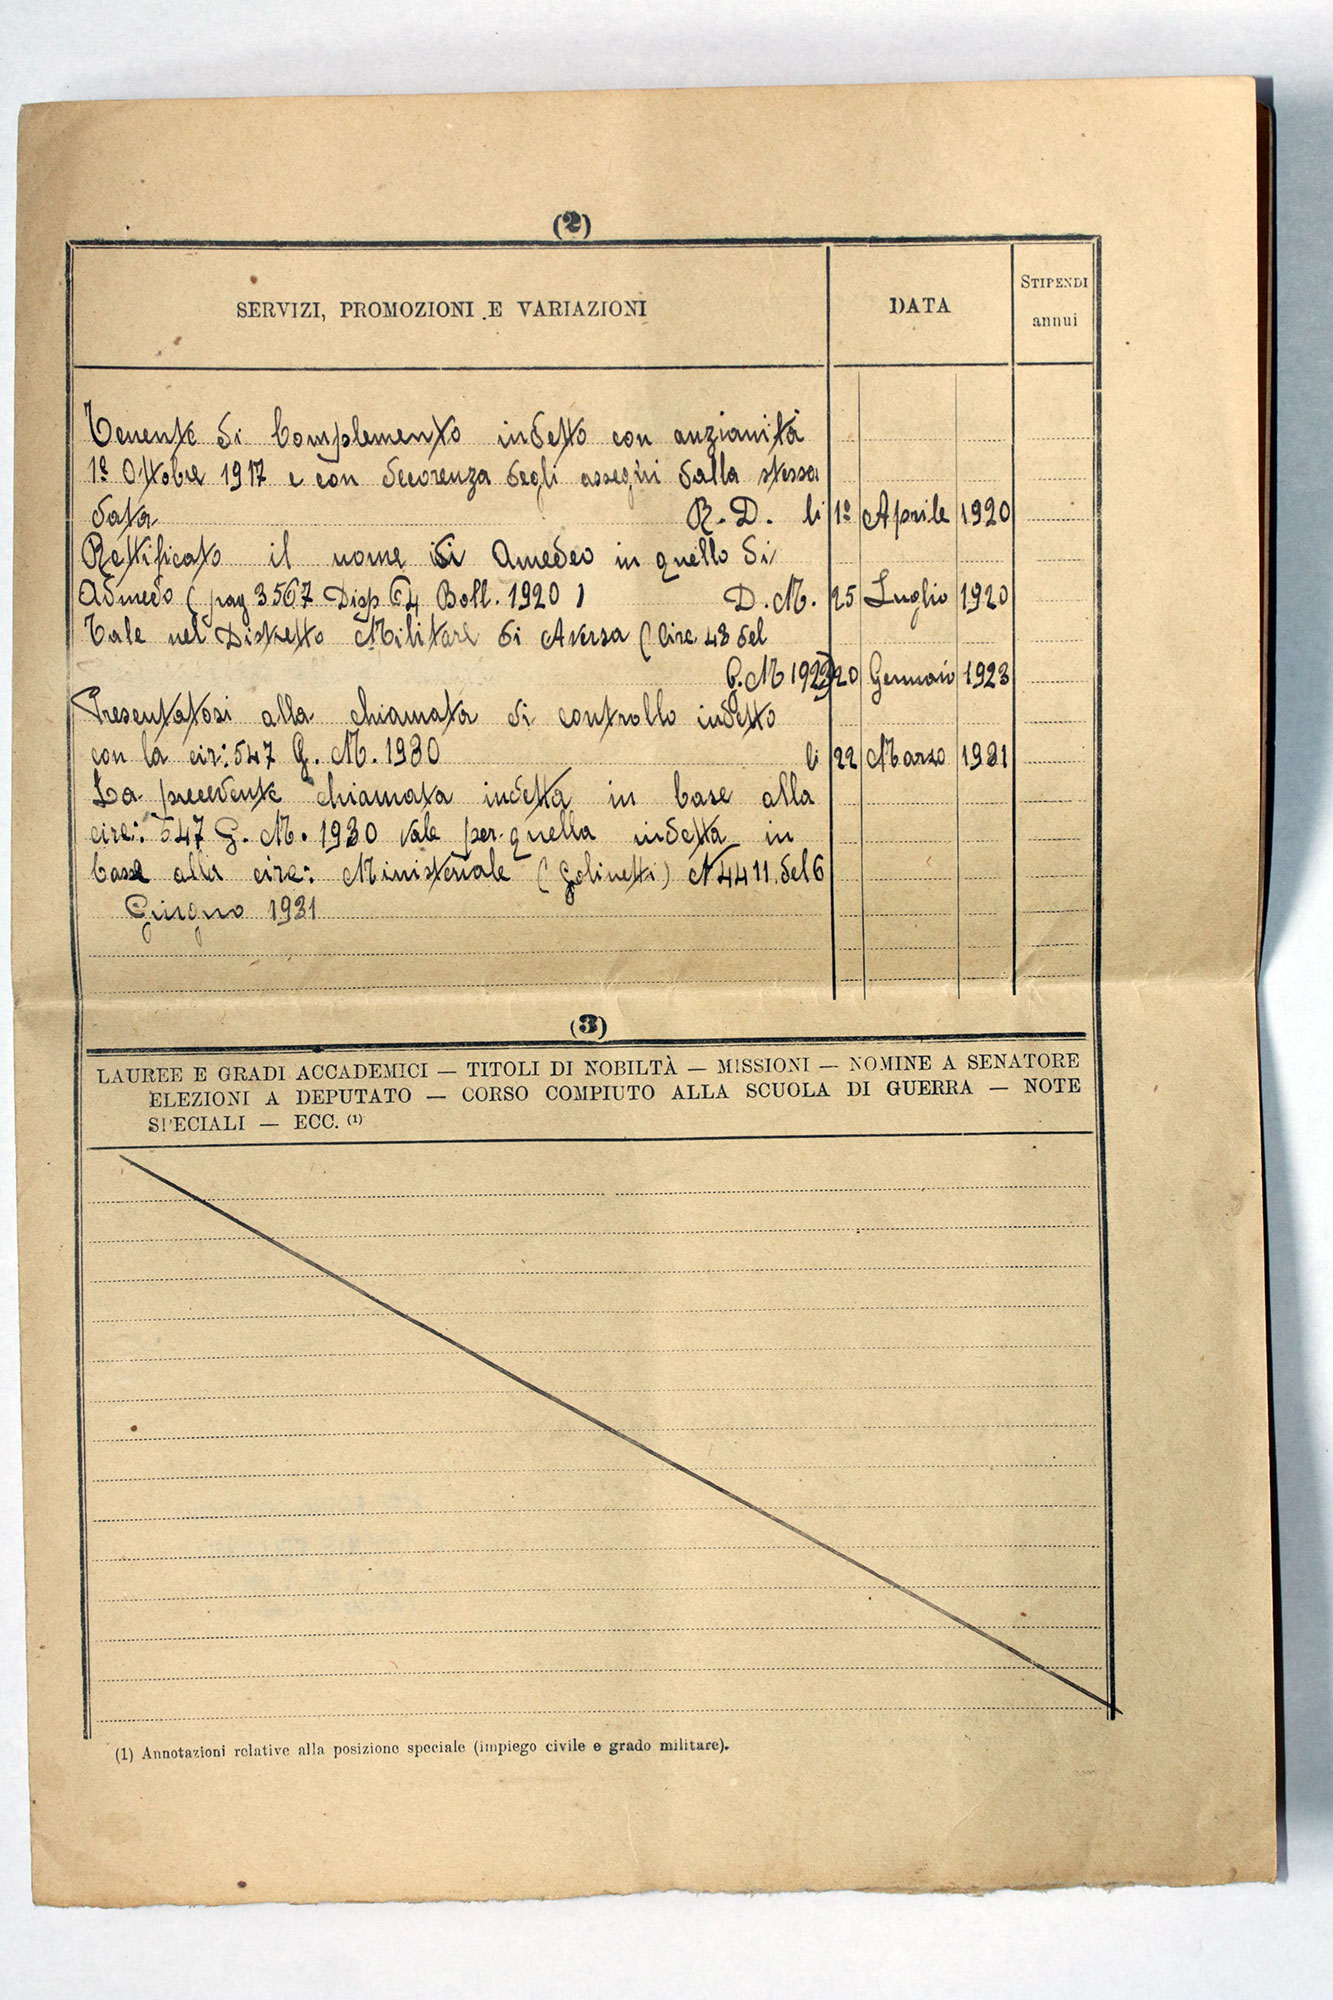 (2)
SERVIZI, PROMOZIONI E VARIAZIONI
DATA
STIPENDI
annui
Tenente di Complemento indetto con anzianità
1º Ottobre 1917 e con decorenza degli assegni dalla stessa
data R. D. li 1º Aprile 1920
Rettificato il nome di Amedeo in quello di
Admedo ( pag 3567 Disp 64 Boll. 1920 ) D. M. 25 Luglio 1920
Tale nel Distretto Militare di Aversa ( Circ 43 del
G. M 1923) 20 Gennaio 1923
Presentatosi alla chiamata di controllo indetto
con la cir: 547 G. M. 1930 li 22 Marzo 1931
La precedente chiamata indetta in base alla
circ: 547 G. M. 1930 vale per quella indetta in
base alla circ: Ministeriale ( Golinetti ) N 4411. del 6
Giugno 1931
(3)
LAUREE E GRADI ACCADEMICI — TITOLI DI NOBILTÀ — MISSIONI — NOMINE A SENATORE
ELEZIONI A DEPUTATO — CORSO COMPIUTO ALLA SCUOLA DI GUERRA — NOTE
SPECIALI — ECC. (1)
(1) Annotazioni relative alla posizione speciale (impiego civile e grado militare).